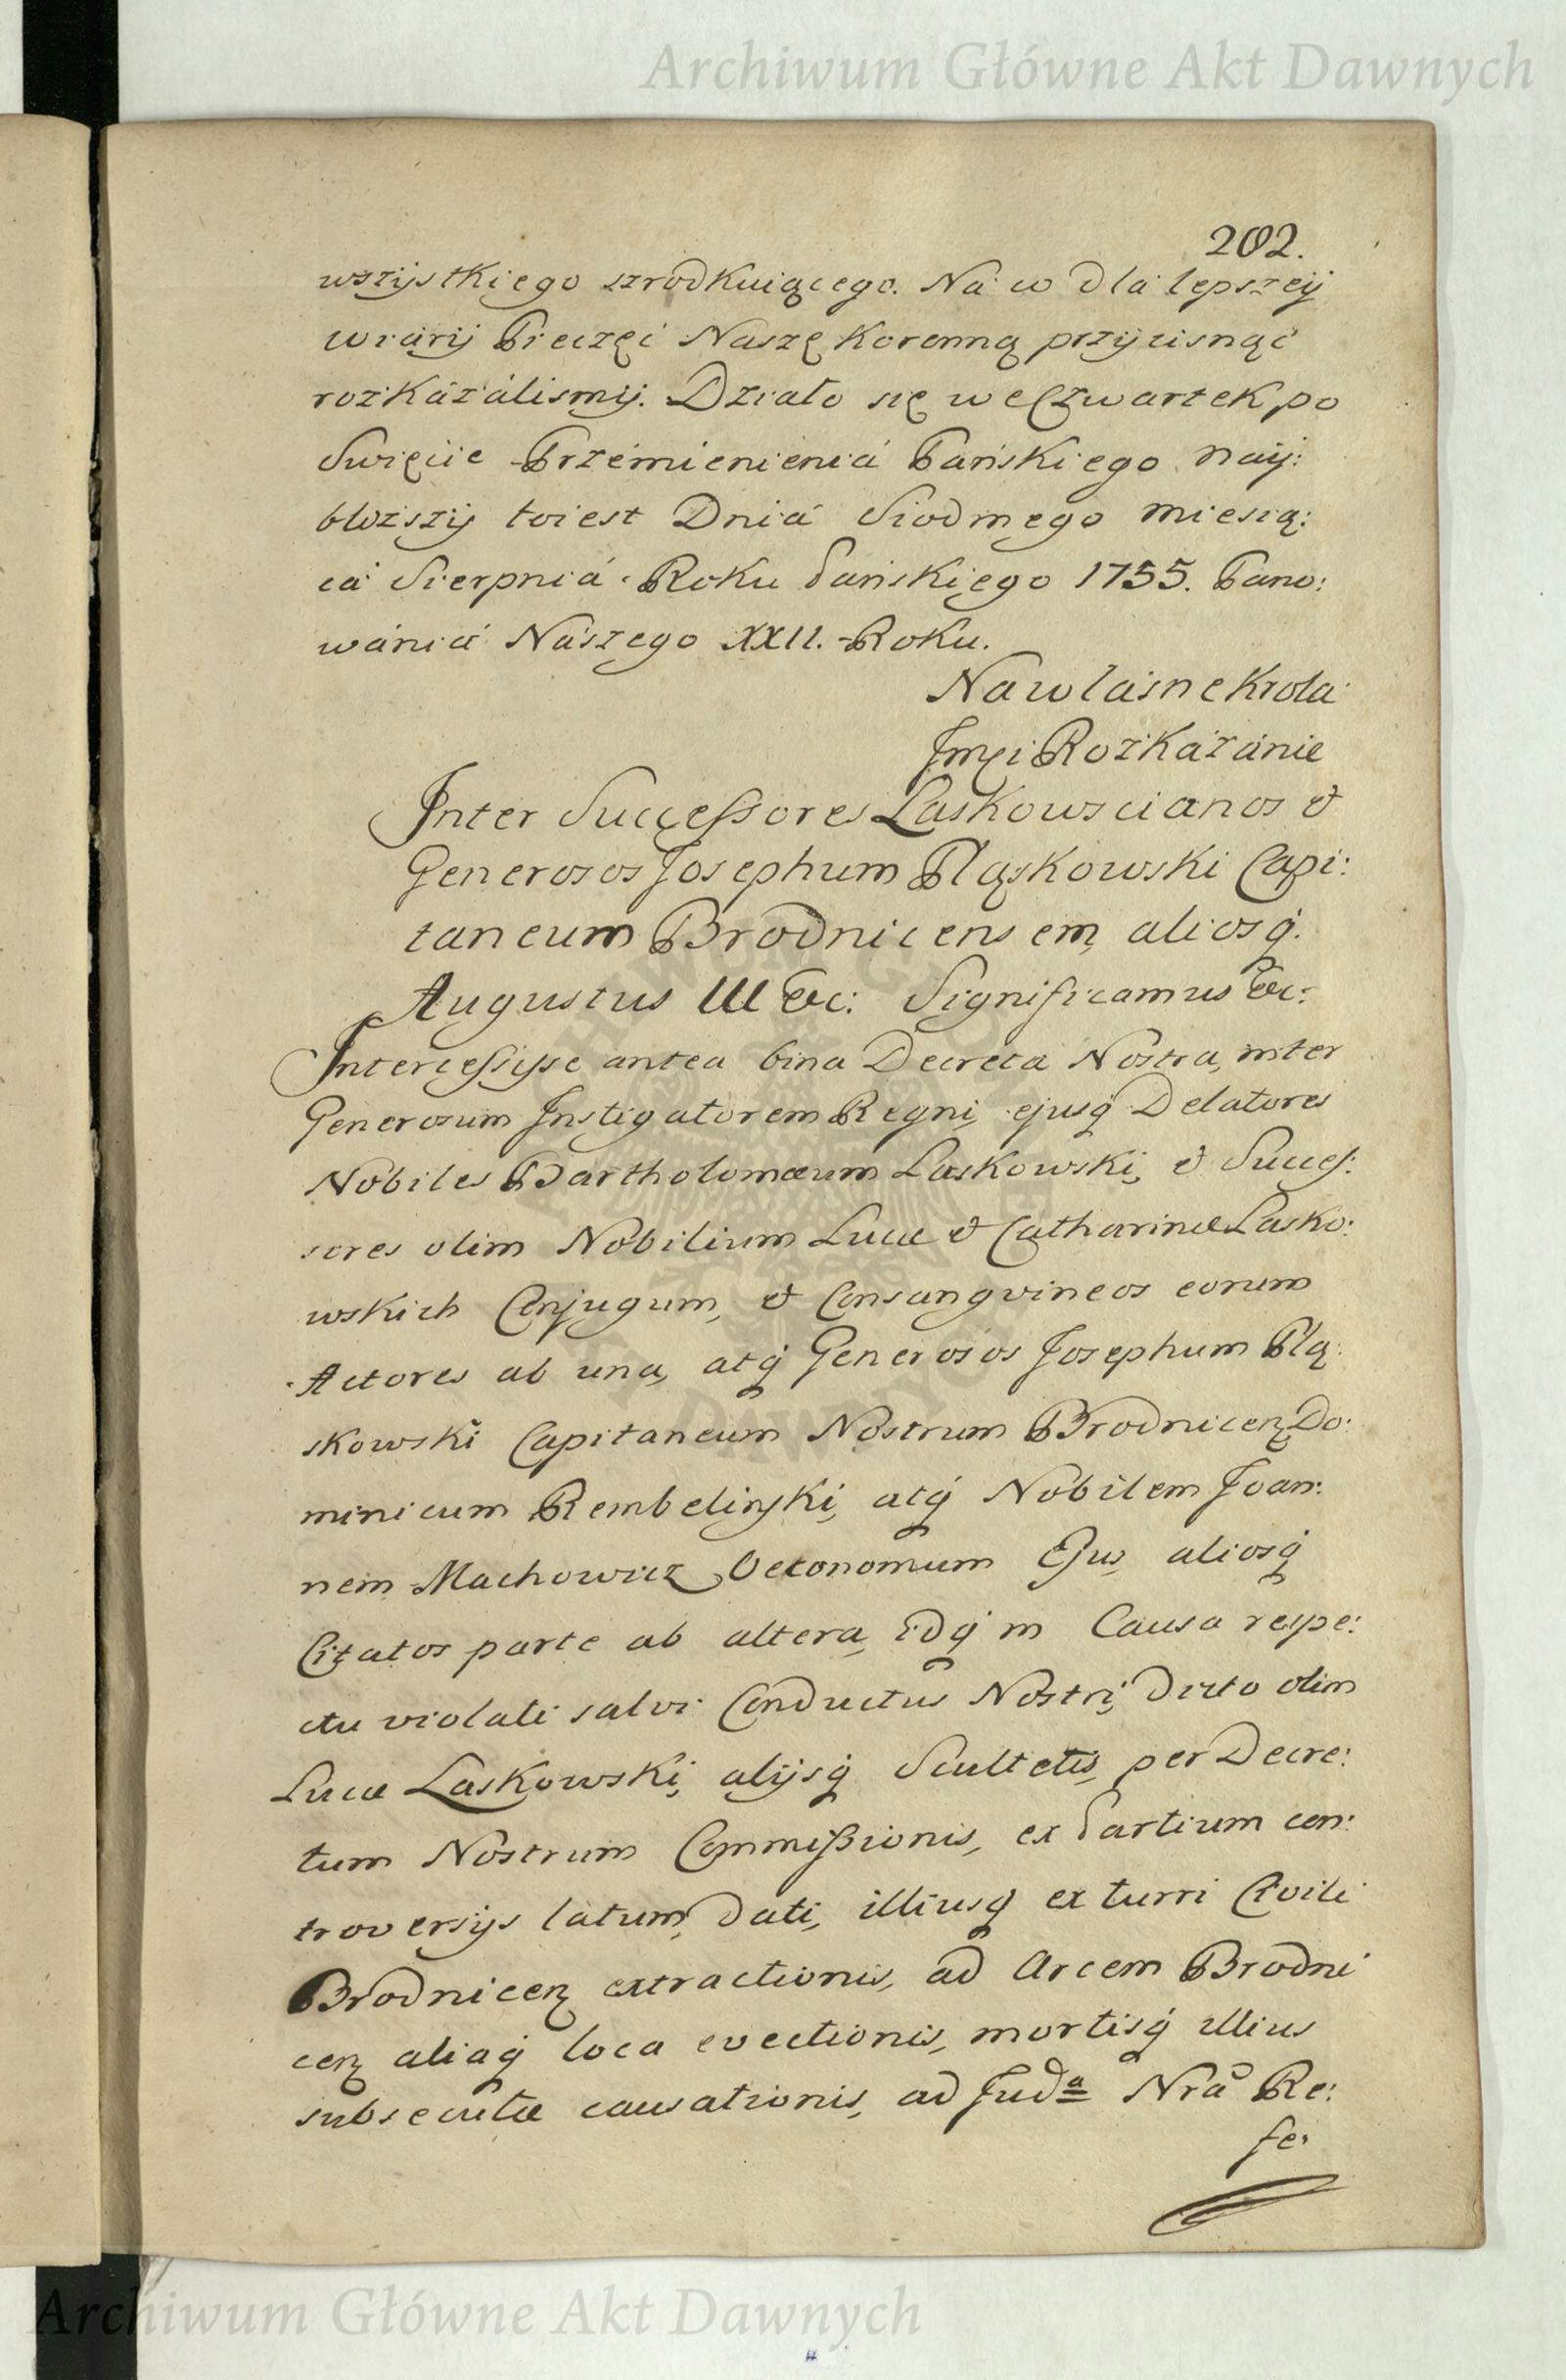 Archiwum Główne Akt Dawnych
202.
wszystkiego szrodkuiącego. Na co dla lepszey
wiary Pieczęć Naszę Koronną przycisnąć
rozkazalismy. Działo się we Czwartek po
Swięcie Przemienienia Pańskiego nay:
bliższy toiest Dnia Siodmego miesią:
ca Sierpnia Roku Pańskiego 1755. Pano:
wania Naszego XXII. Roku.
Na własne Krola
Jmci Rozkazanie
Inter Successores Laskowscianos &
Generosos Josephum Pląskowski Capi:
taneum Brodnicensem, aliosq́.
Augustus III &c: Significamus &c:
Intercessisse antea bina Decreta Nostra, inter
Generosum Instigatorem Regni, ejusq́ Delatores
Nobiles Bartholomæum Laskowski, & Succes:
sores olim Nobilium Lucæ & Catharinæ Lasko:
wskich Conjugum, & Consangvineos eorum
Actores ab una, atq́ Generosos Josephum Plą:
skowski Capitaneum Nostrum Brodnicen̄ Do:
minicum Rembelinski, atq́ Nobilem Joan:
nem Machowicz Oeconomum Ejus, aliosq́
Citatos parte ab altera, idq́ in Causa respe:
ctu violati salvi Conductus Nostri, dicto olim
Lucæ Laskowski, alijsq́ Scultetis, per Decre:
tum Nostrum Commissionis, ex Partium con:
troversijs latum, dati, illiusq́ ex turri Civili
Brodnicen̄ extractionis, ad Arcem Brodni
cen̄ aliaq́ loca evectionis, mortisq́ illius
subsecutæ causationis, ad Jud<sup>a</sup> Nrã Re:
fe:
Archiwum Główne Akt Dawnych